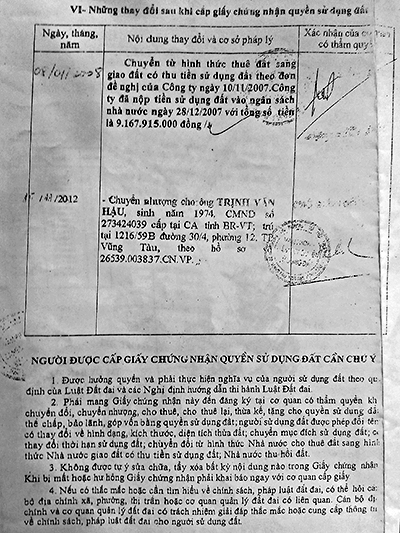 VI- Những thay đổi sau khi cấp giấy chứng nhận quyền sử dụng đất
Ngày, tháng, năm
Nội dung thay đổi và cơ sở pháp lý
Xác nhận của cơ
có thẩm quy
Chuyển từ hình thức thuê đất sang
giao đất có thu tiền sử dụng đất theo đơn
đề nghị của Công ty ngày 10/11/2007.Công
ty đã nộp tiền sử dụng đất vào ngân sách
nhà nước ngày 28/12/2007 với tổng số tiền
là 9.167.915.000 đồng /.
/2012
- Chuyển nhượng cho ông TRỊNH VĂN
HẬU, sinh năm 1974, CMND số
273424039 cấp tại CA tỉnh BR-VT; trú
tại 1216/59B đường 30/4, phường 12, TP
Vũng Tàu, theo hồ sơ
26539.003837.CN.VP.
NGƯỜI ĐƯỢC CẤP GIẤY CHỨNG NHẬN QUYỀN SỬ DỤNG ĐẤT CẦN CHÚ Ý
1. Được hưởng quyền và phải thực hiện nghĩa vụ của người sử dụng đất theo qu
định của Luật Đất đai và các Nghị định hướng dẫn thi hành Luật Đất đai.
2. Phải mang Giấy chứng nhận này đến đăng ký tại cơ quan có thẩm quyền kh
chuyển đổi, chuyển nhượng, cho thuê, cho thuê lại, thừa kế, tặng cho quyền sử dụng đấ
thế chấp, bảo lãnh, góp vốn bằng quyền sử dụng đất; người sử dụng đất được phép đổi tên
có thay đổi về hình dạng, kích thước, diện tích thửa đất; chuyển mục đích sử dụng đất; c
thay đổi thời hạn sử dụng đất; chuyển đổi từ hình thức Nhà nước cho thuê đất sang hình
thức Nhà nước giao đất có thu tiền sử dụng đất; Nhà nước thu hồi đất.
3. Không được tự ý sửa chữa, tẩy xóa bất kỳ nội dung nào trong Giấy chứng nhận
Khi bị mất hoặc hư hỏng Giấy chứng nhận phải khai báo ngay với cơ quan cấp giấy
4. Nếu có thắc mắc hoặc cần tìm hiểu về chính sách, pháp luật đất đai, có thể hỏi cá
bộ địa chính xã, phường, thị trấn hoặc cơ quan quản lý đất đai có liên quan. Cán bộ đị
chính và cơ quan quản lý đất đai có trách nhiệm giải đáp thắc mắc hoặc cung cấp thông tin
về chính sách, pháp luật đất đai cho người sử dụng đất.